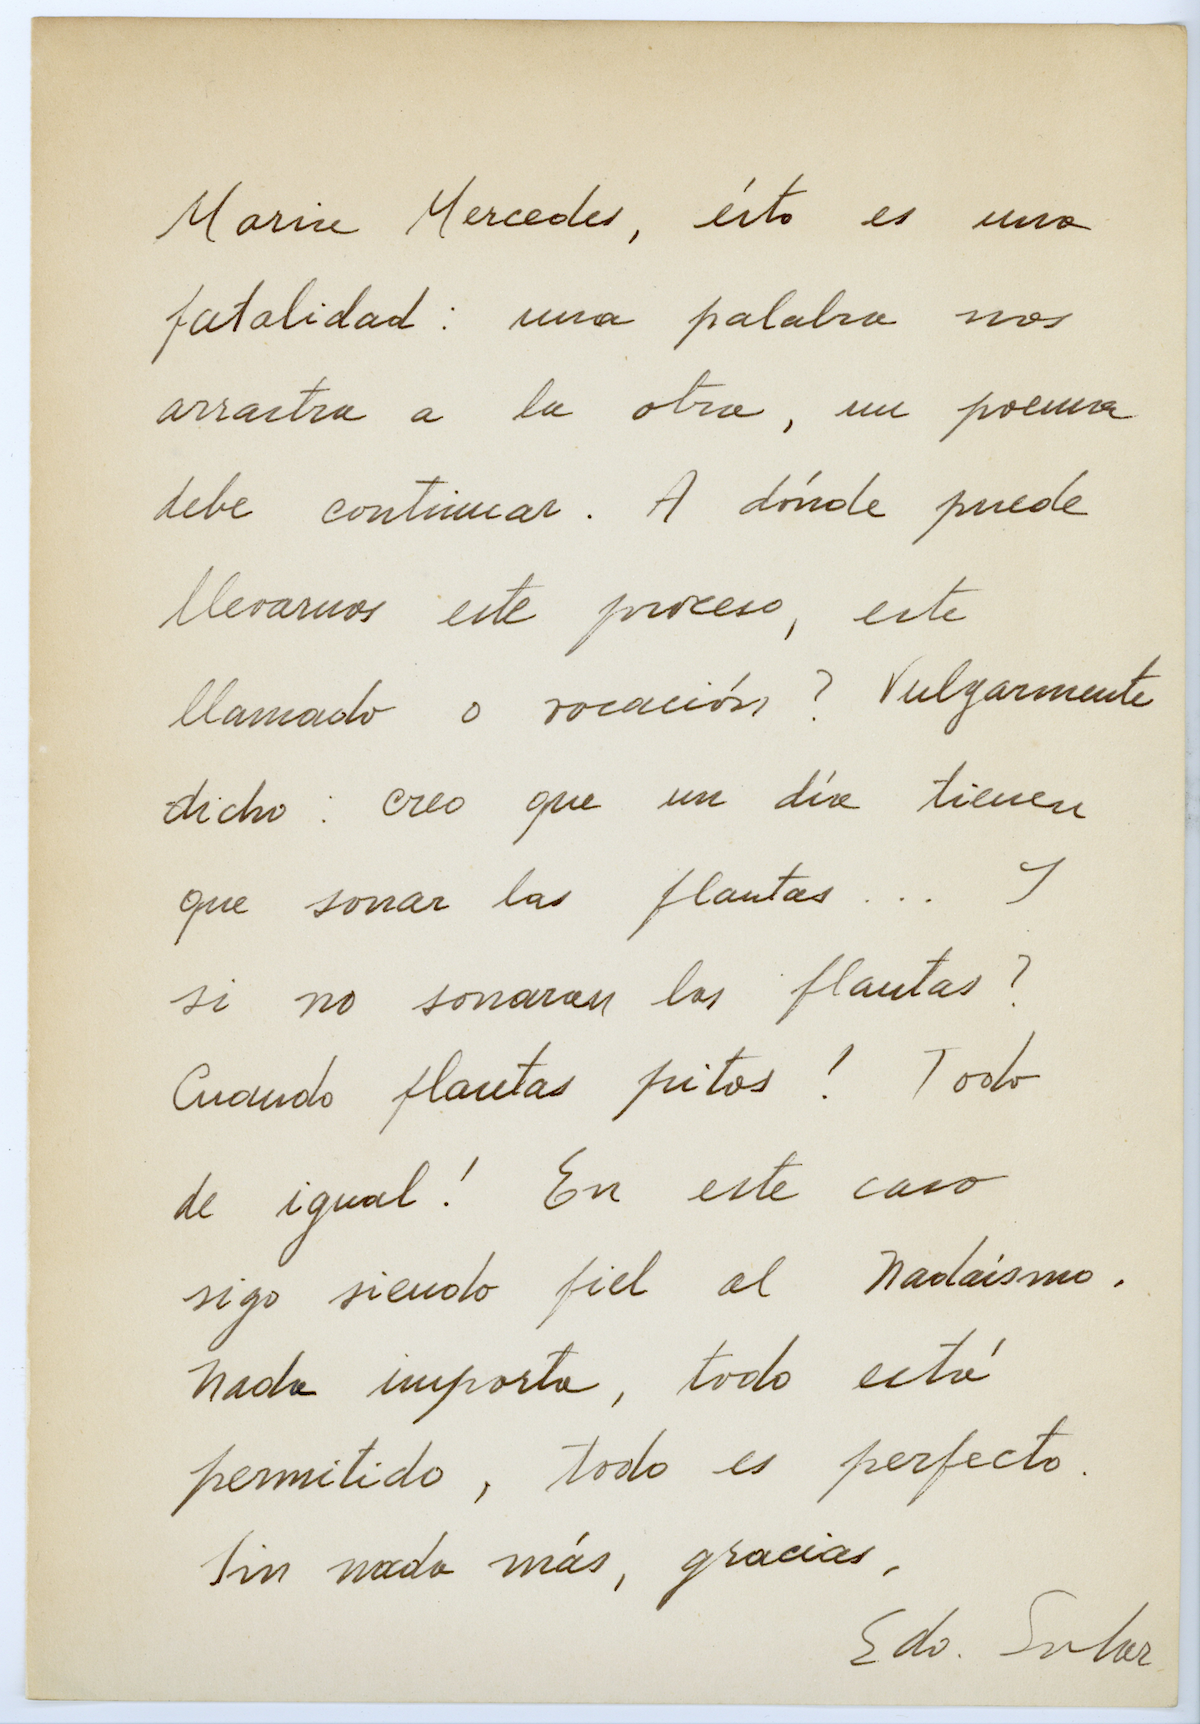 María Mercedes, ésto es una
fatalidad: una palabra nos
arrastra a la otra, un poema
debe continuar. A dónde puede
llevarnos este proceso, este
llamado o vocación? Vulgarmente
dicho: creo que un día tienen
que sonar las flautas... Y
si no sonaran las flautas?
Cuando flautas pitos! Todo
de igual! En este caso
sigo siendo fiel al Nadaísmo.
Nada importa, todo está
permitido, todo es perfecto.
Sin nada más, gracias,
Edo.